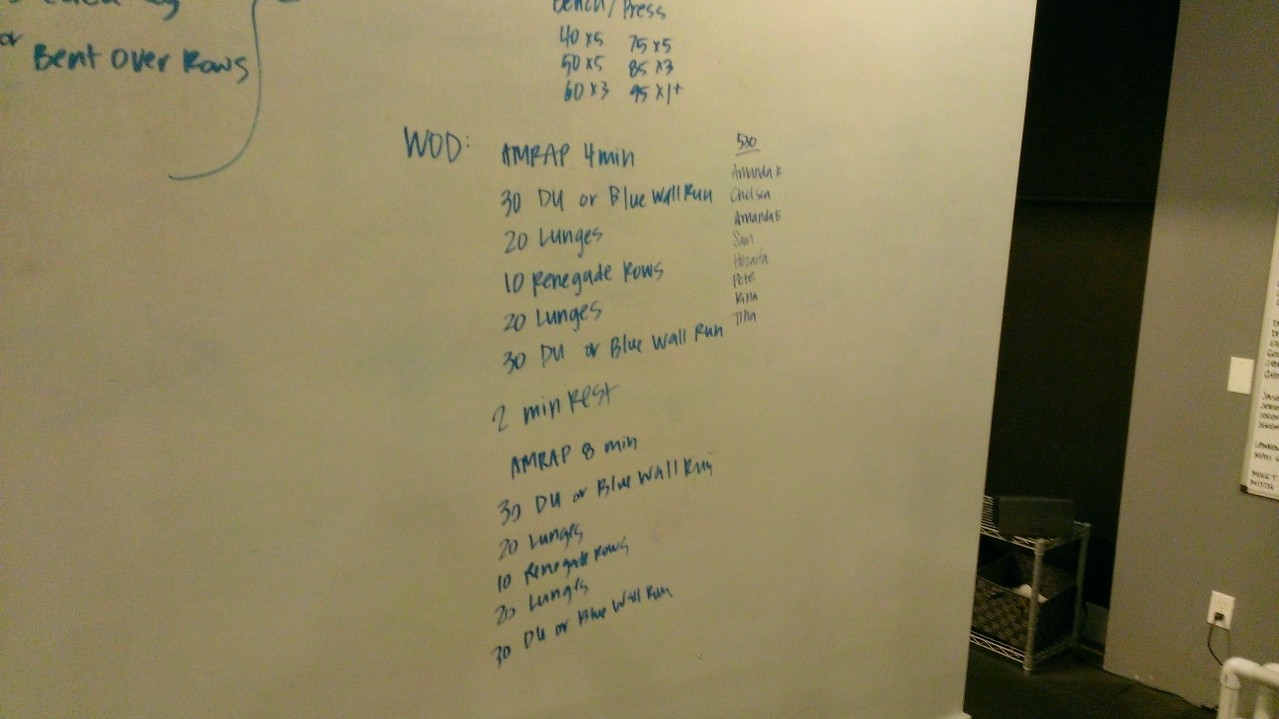 or
Bent Over Rows
Bench/Press
40 x5 75 x5
50 x5 85 x3
60 x3 95 x1+
WOD:
AMRAP 4 min
30 DU or Blue Wall Run
20 Lunges
10 Renegade Rows
20 Lunges
30 DU or Blue Wall Run
2 min Rest
AMRAP 8 min
30 DU or Blue Wall Run
20 Lunges
10 Renegade Rows
20 Lunges
30 DU or Blue Wall Run
530
Amanda K
Chelsea
Amanda
Sam
Pete
Kina
Tina